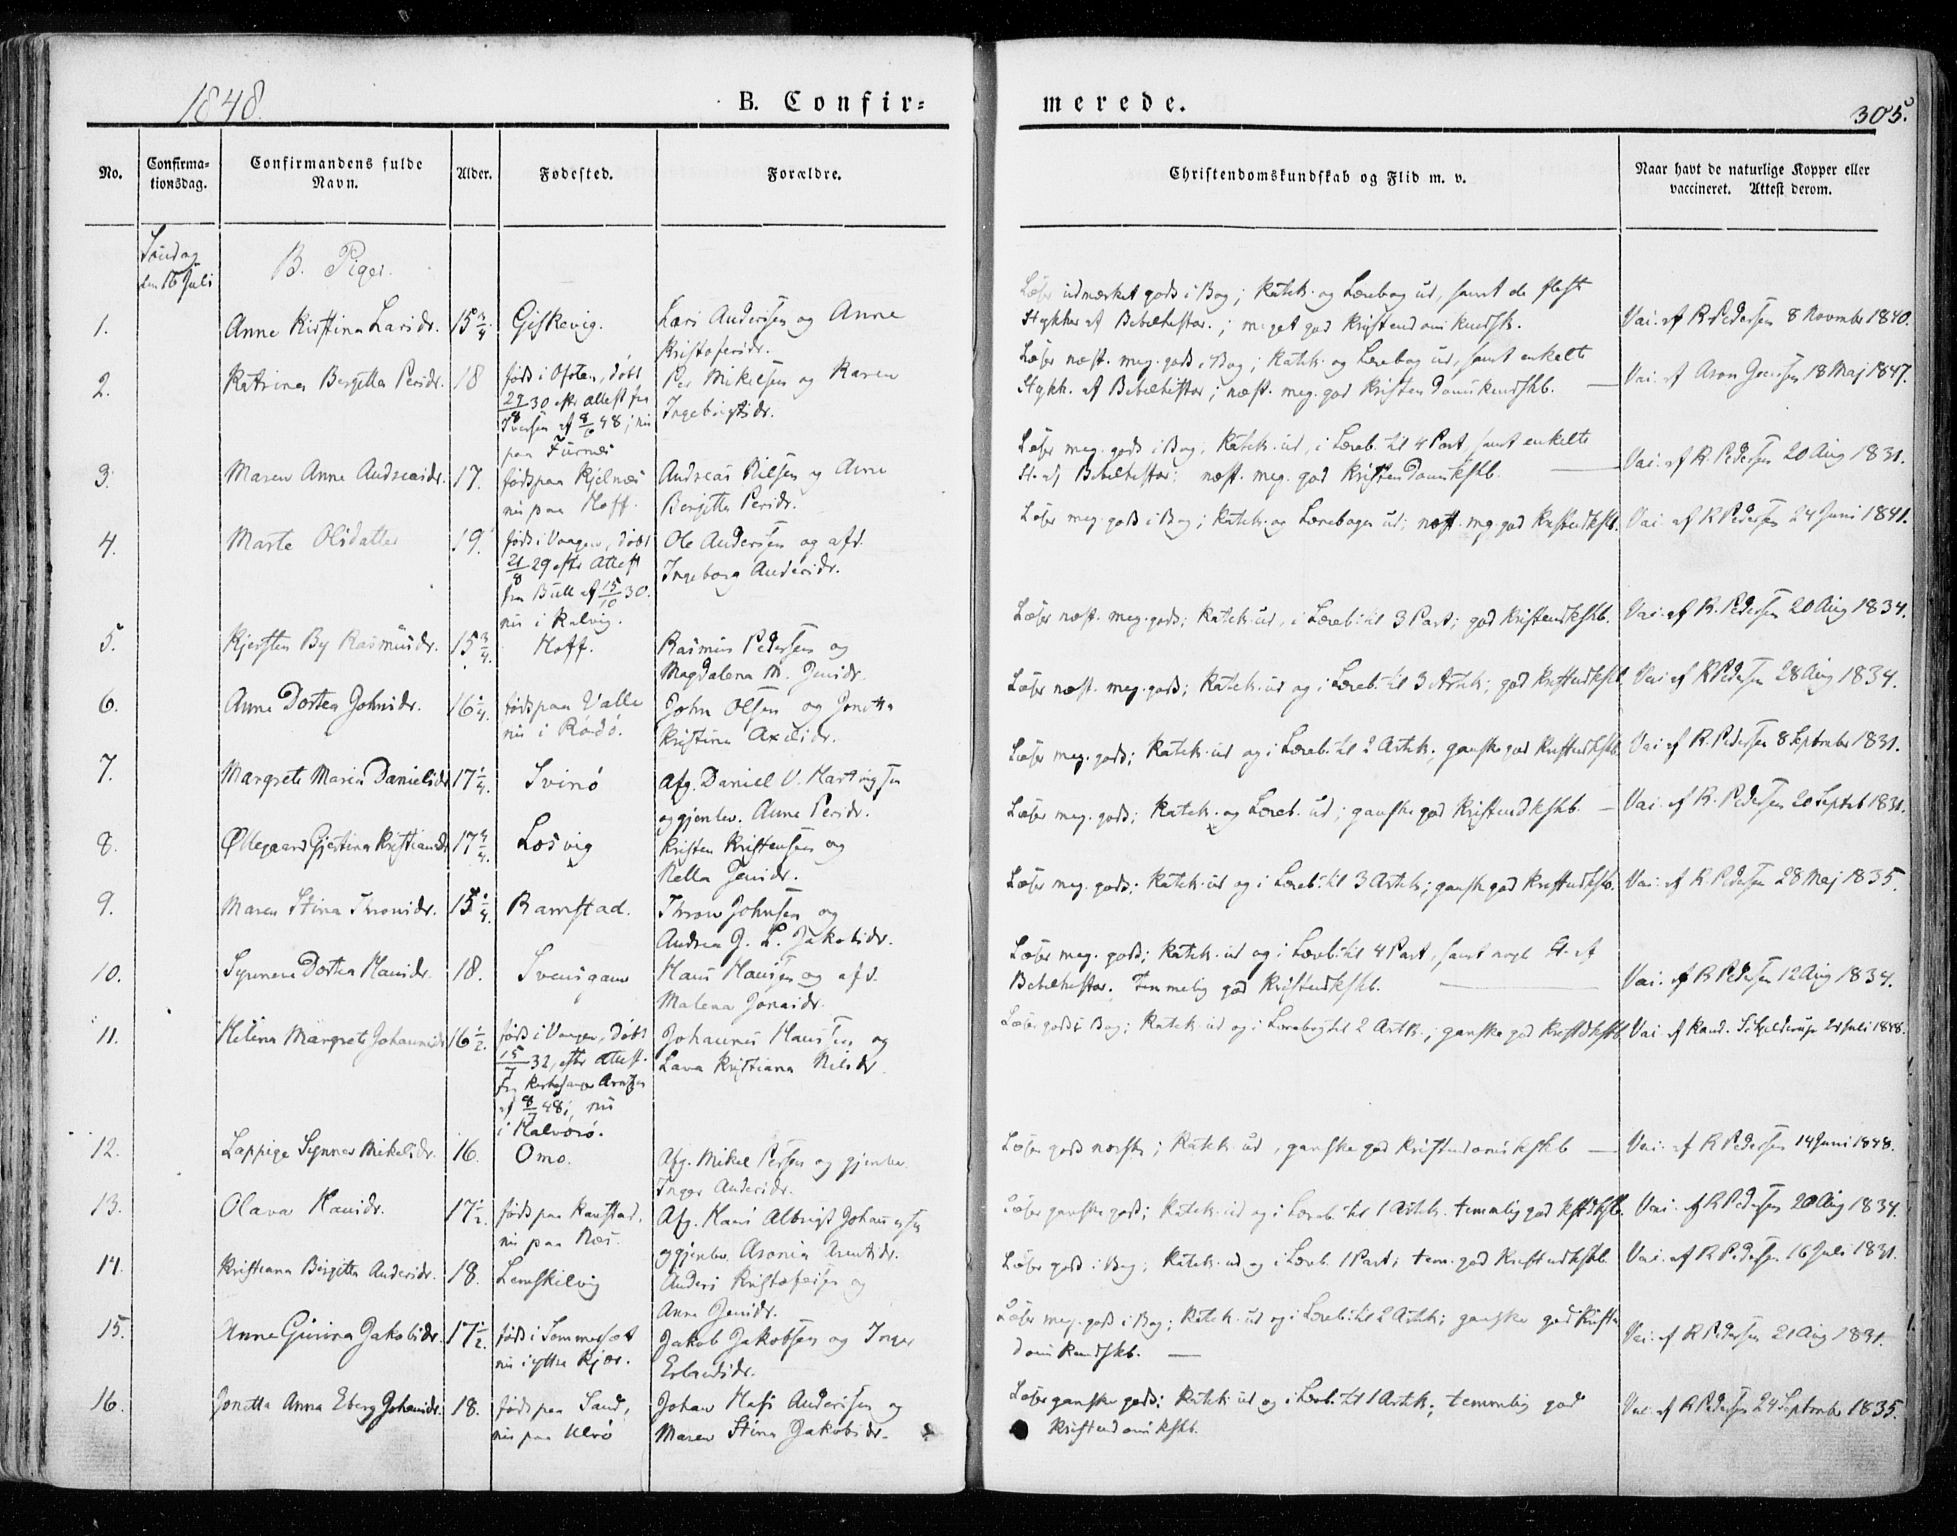 1848.
B. Confir=
merede.
305.
No.
Confirma=
tionsdag.
Confirmandens fulde
Navn.
Alder.
Fødested.
Forældre.
Christendomskundskab og Flid m. v.
Naar havt de naturlige Kopper eller
vaccineret. Attest derom.
Søndag
den 16 Juli
B. Piger.
1. Anne Kirstina Larsdr. 15 3/4. Giskevig. Lars Andersen og Anne
Kristofersdr.
Læser udmærket gods i Bog; Katek. og Lærebog ud, samt de fleste
Stykker af Bibelhistor.; meget god Kristendomskundsk.
Vac. af R. Pedersen 8 November 1840.
2. Katrina Bergitta Persdr. 18 født i Ofoten, døbt
29/8 30 efter Attest fra
Iversen af 8/6 48; nu
paa Furnæs
Per Mikelsen og Karen
Ingebrigtsdr.
Læser næst. meg. gods i Bog; Katek. og Lærebog ud, samt enkelte
Stykk. af Bibelhistor; næst. meg. god Kristendomskundskb.
Vac. af Aron Jensen 18 Maj 1847.
3. Maren Anne Andreasdr. 17. født paa Kjelnæs
nu paa Hoff.
Andreas Nielsen og Anne
Bergitta Persdr.
Læser meg. gods i Bog; Katek. ud, i Læreb. til 4 Part, samt enkelte
St. af Bibelhistor: næst. meg. god Kristendomskskb.
Vac. af R. Pedersen 20 Aug 1831.
4. Marte Olsdatter 19. født i Vaagen, døbt
21/8 29 efter Attest
fra Bull af 15/10 30.
nu i Kalvig.
Ole Andersen og afd.
Ingeborg Andersdr.
Læser meg. gods i Bog; Katek. og Lærebogen ud; næst. meg god Kristendkskb.
Vac. af R Pedersen 24 Juni 1841.
5. Kjersten By Rasmusdr. 15 3/4. Hoff. Rasmus Pedersen og
Magdalena M. Jensdr.
Læser næst. meg. gods; Katek. ud, i Læreb. til 3 Part; god Kristendkskb.
Vac. af R. Pedersen 20 Aug 1834.
6. Anne Dortea Johnsdr. 16 1/4. født paa Valle
nu i Rødø.
John Olsen og Jonetta
Kristina Axelsdr.
Læser næst. meg. gods; Katek. ud og i Læreb. til 3 Artk; god Kristendkskb
Vac. af R Pedersen 28 Aug 1834.
7. Margrete Maria Danielsdr. 17 1/4. Svinø Afg. Daniel U. Hartvigsen
og gjenlev. Anne Persdr.
Læser meg. gods; Katek. ud og i Læreb. til 2 Artk; ganske god Kristendkskb.
Vac. af R. Pedersen 8 September 1831.
8. Øllegaard Gjertina Kristiansdr. 17 3/4. Løsvig Kristen Kristensen og
Pella Jensdr.
Læser meg. gods; Katek. og Læreb. ud; ganske god Kristendkskb.
Vac. af R. Pedersen 20 Septeb 1831.
9. Maren Stina Thronsdr. 15 1/4. Ramstad. Thron Johnsen og
Andrea J. L. Jakobsdr.
Læser meg. gods; Katek. ud og i Læreb. til 3 Artk; ganske god Kristendkskb.
Vac. af R Pedersen 28 Maj 1835.
10. Synnena Dortea Hansdr. 18. Svensgam Hans Hansen og afd.
Malena Jonasdr.
Læser meg. gods; Katek. ud og i Læreb. til 4 Part, samt nogl. St. af
Bibelhistor. Temmelig god Kristendkskb.
Vac. af R Pedersen 12 Aug 1834.
11. Helena Margrete Johannesdr. 16 1/2. født i Vaagen, døbt
15/7 32, efter Attest
fra Kirkesanger Arntzen
af 8/7 48; nu
i Kalvøsø.
Johannes Hansen og
Lava Kristiana Nilsdr.
Læser gods i Bog; Katek. ud og i Lærebog til 2 Artk; ganske god Kristdkskb.
Vac. af Kand. Schelderup 21 Juli 1848.
12. Lappige Synnev Mikelsdr. 16. Omo. Afg. Mikel Persen og gjenlev.
Inger Andersdr.
Læser gods norsk; Katek. ud, ganske god Kristendomskskb
Vac. af R Pedersen 14 Juni 1848.
13. Olava Hansdr. 17 1/2. født paa Kanstad,
nu paa Næs.
Afg. Hans Albrigt Johansen
og gjenlev. Asonia Arentsdr.
Læser ganske gods; Katek. ud og i Læreb. til 1 Artk. temmelig god Kstdkskb.
Vac. af R Pedersen 20 Aug 1834.
14. Kristiana Bergitta Andersdr. 18. Lemskilvig Anders Kristofersen og
Anne Jensdr.
Læser gods i Bog; Katek. ud og i Læreb. 1 Part; tem. god Kristendkskb.
Vac. af R Pedersen 16 Juli 1831.
15. Anne Gurina Jakobsdr. 17 1/2. født i Sommersæt
nu i yttre Kjær.
Jakob Jakobsen og Inger
Erlandsdr.
Læser meg. gods i Bog; Katek. ud og i Læreb. til 2 Artk; ganske god Kristen
domskundskb.
Vac. af R Pedersen 21 Aug 1831.
16. Jonetta Anna Eberg Johansdr. 18. født paa Sand,
nu paa Ulvø
Johan Hass Andersen og
Maren Stina Jakobsdr.
Læser ganske gods; Katek. ud og i Læreb. til 1 Artk; temmelig god
Kristendomskskb.
Vac. af R Pedersen 24 September 1835.